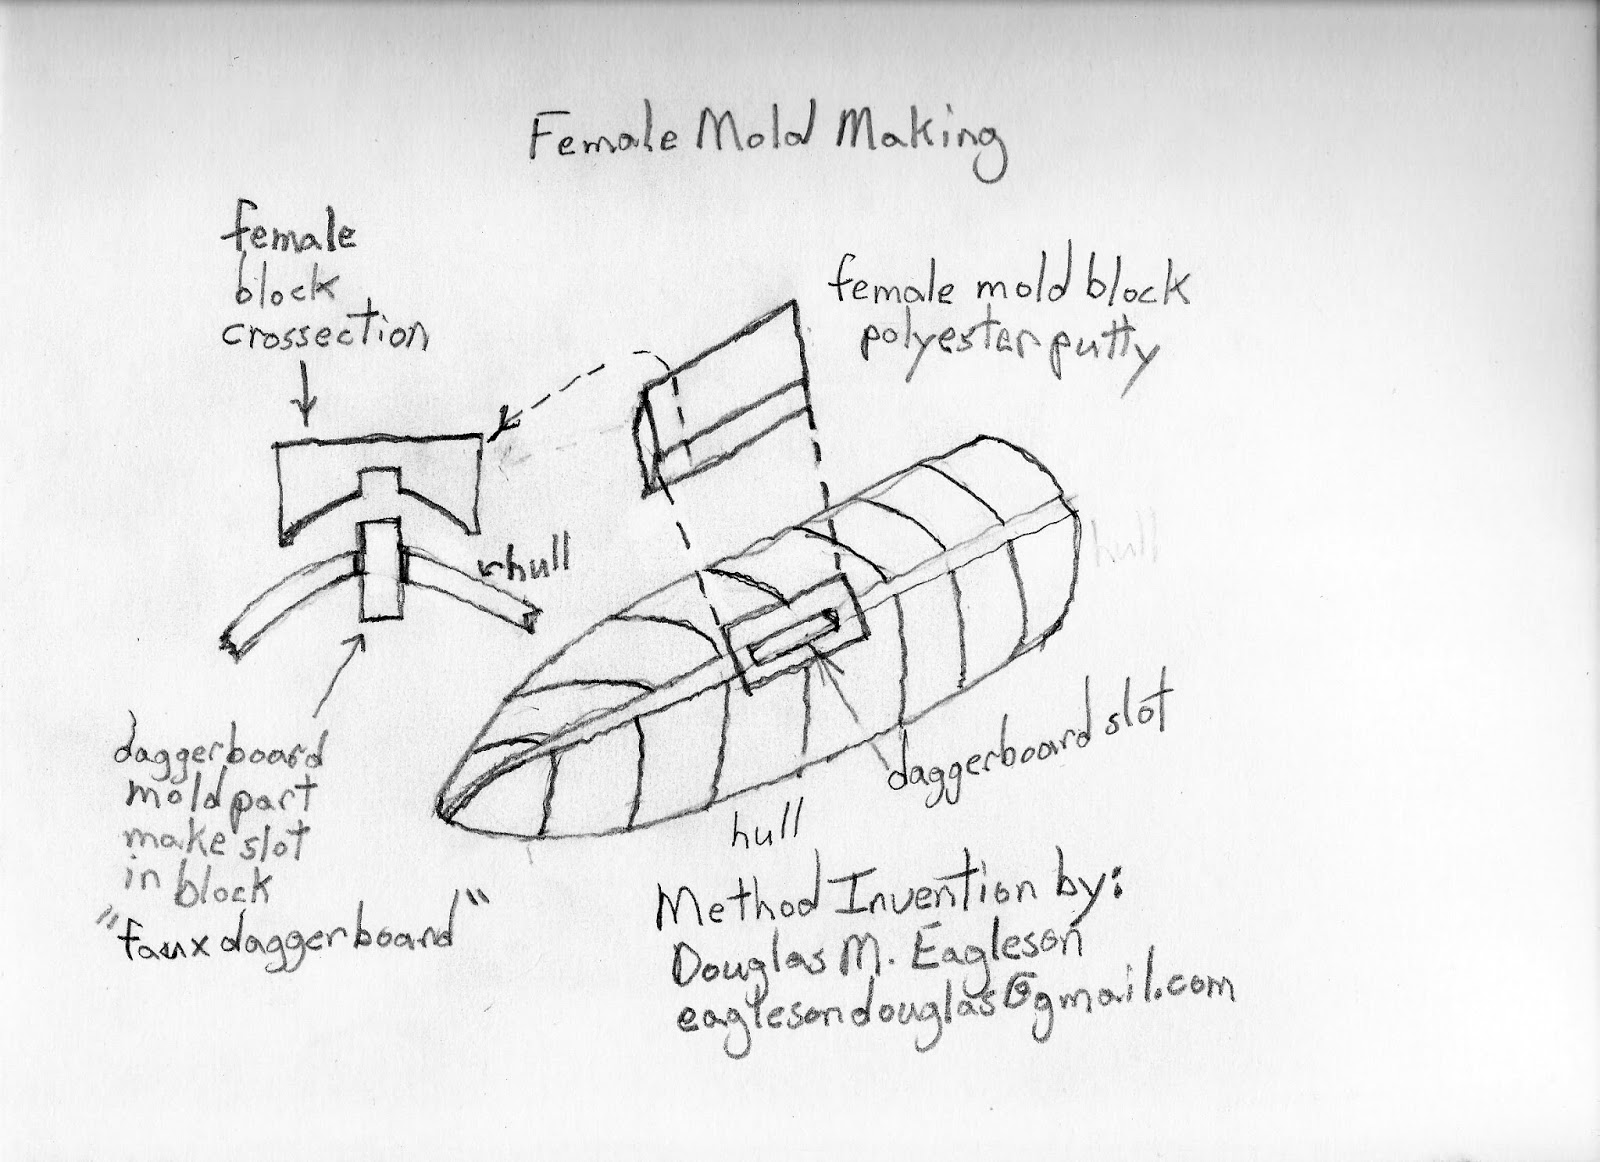 Female Mold Making
female
block
crossection
female mold block
polyester putty
hull
hull
daggerboard slot
daggerboard
mold part
make slot
in block
"faux daggerboard"
hull
Method Invention by:
Douglas M. Eagleson
eaglesondouglas@gmail.com